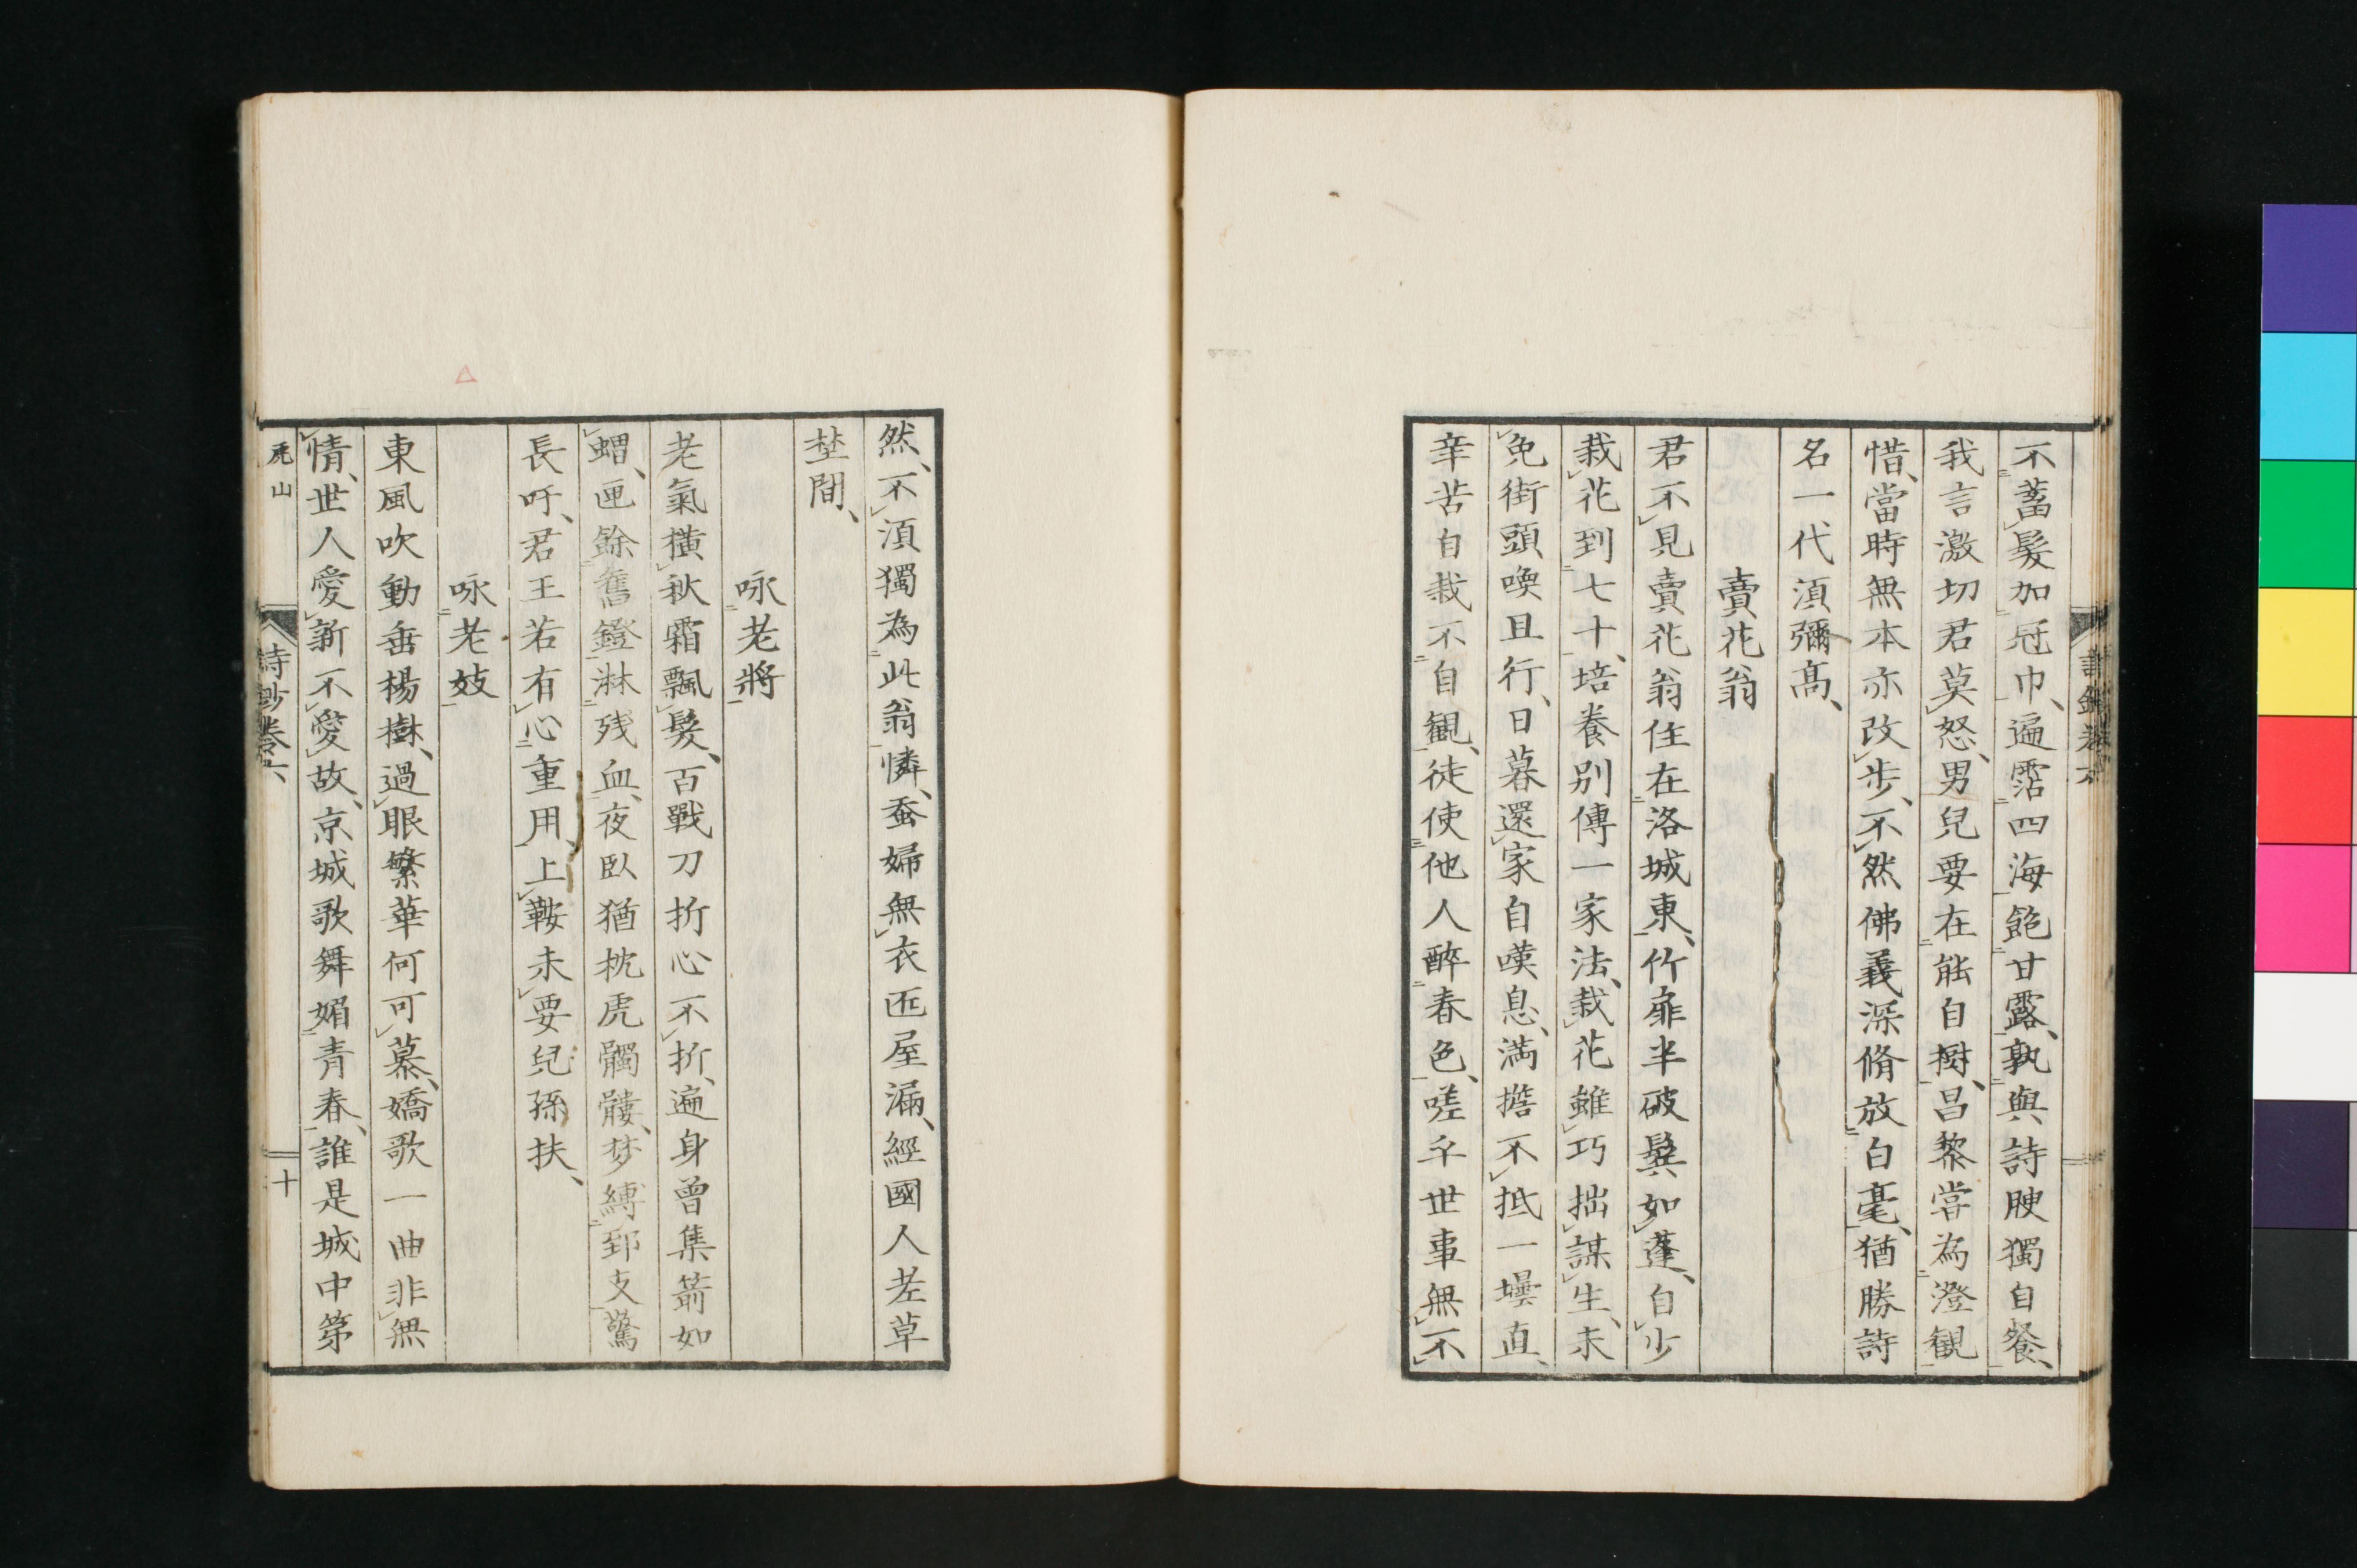 不蓄髮加冠巾、遍霑四海飽甘露、孰與詩腴獨自餐、
我言激切君莫怒、男兒要在能自樹、昌黎嘗為澄観
惜、當時無本亦改步、不然佛義深脩放白毫、猶勝詩
名一代湏彌髙、
賣花翁
君不見賣花翁住在洛城東、竹扉半破鬓如蓬、自少
栽花到七十、培養別傳一家法、栽花雖巧拙謀生、未
免街頭喚且行、日暮還家自嘆息、満擔不抵一壜直、
辛苦自栽不自観、徒使他人醉春色、嗟乎世事無不
然、不湏獨為此翁憐、蚕婦無衣匠屋漏、經國人老草
埜間、
咏老將
老氣橫秋霜飄髮、百戰刀折心不折、遍身曾集箭如
蝟、匣餘舊鐙淋残血、夜臥猶枕虎髑髏、梦縛郅支驚
長吁、君王若有心重用、上鞍未要兒孫扶、
咏老妓
東風吹動垂楊樹、過眼繁華何可慕、嬌歌一曲非無
情、世人愛新不愛故、京城歌舞媚青春、誰是城中第
詩鈔卷六 十